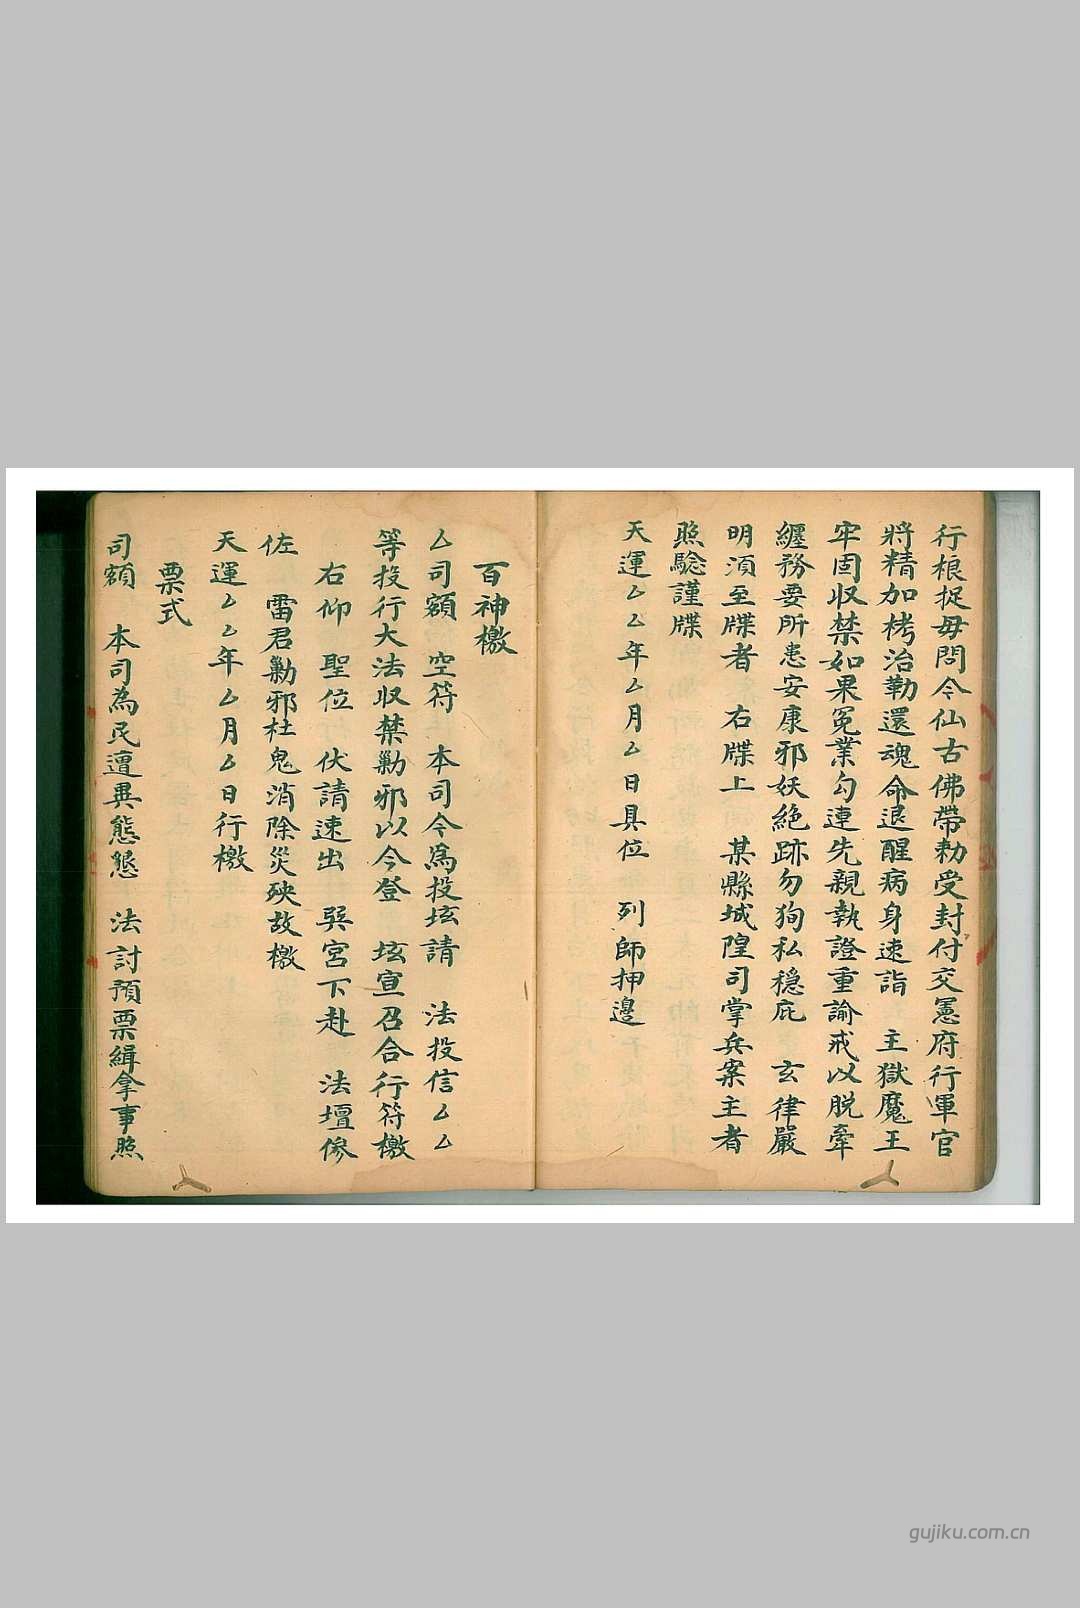 行根捉毋問令仙古佛帶勅受封付交憲府行軍官
將精加栲治勒還魂命退醒病身速詣 主獄魔王
牢固収禁如果冤業勾連先親執證重諭戒以脫牽
纏務要所患安康邪妖絶跡勿狥私穩庇 玄律嚴
明須至牒者 右牒上 某縣城隍司掌兵案主者
照驗謹牒
天運厶厶年厶月厶日具位 列師押邊
百神檄
厶司額 空符 本司今為投垓請 法投信厶厶
等投行大法収禁勦邪以今登 垓宣召合行符檄
右仰 聖位 伏請速出 巽宮下赴 法壇傪
佐 雷君勦邪杜鬼消除災殃故檄
天運厶厶年厶月厶日行檄
票式
司額 本司為民遭異態懇 法討預票緝拿事照
gujiku.com.cn